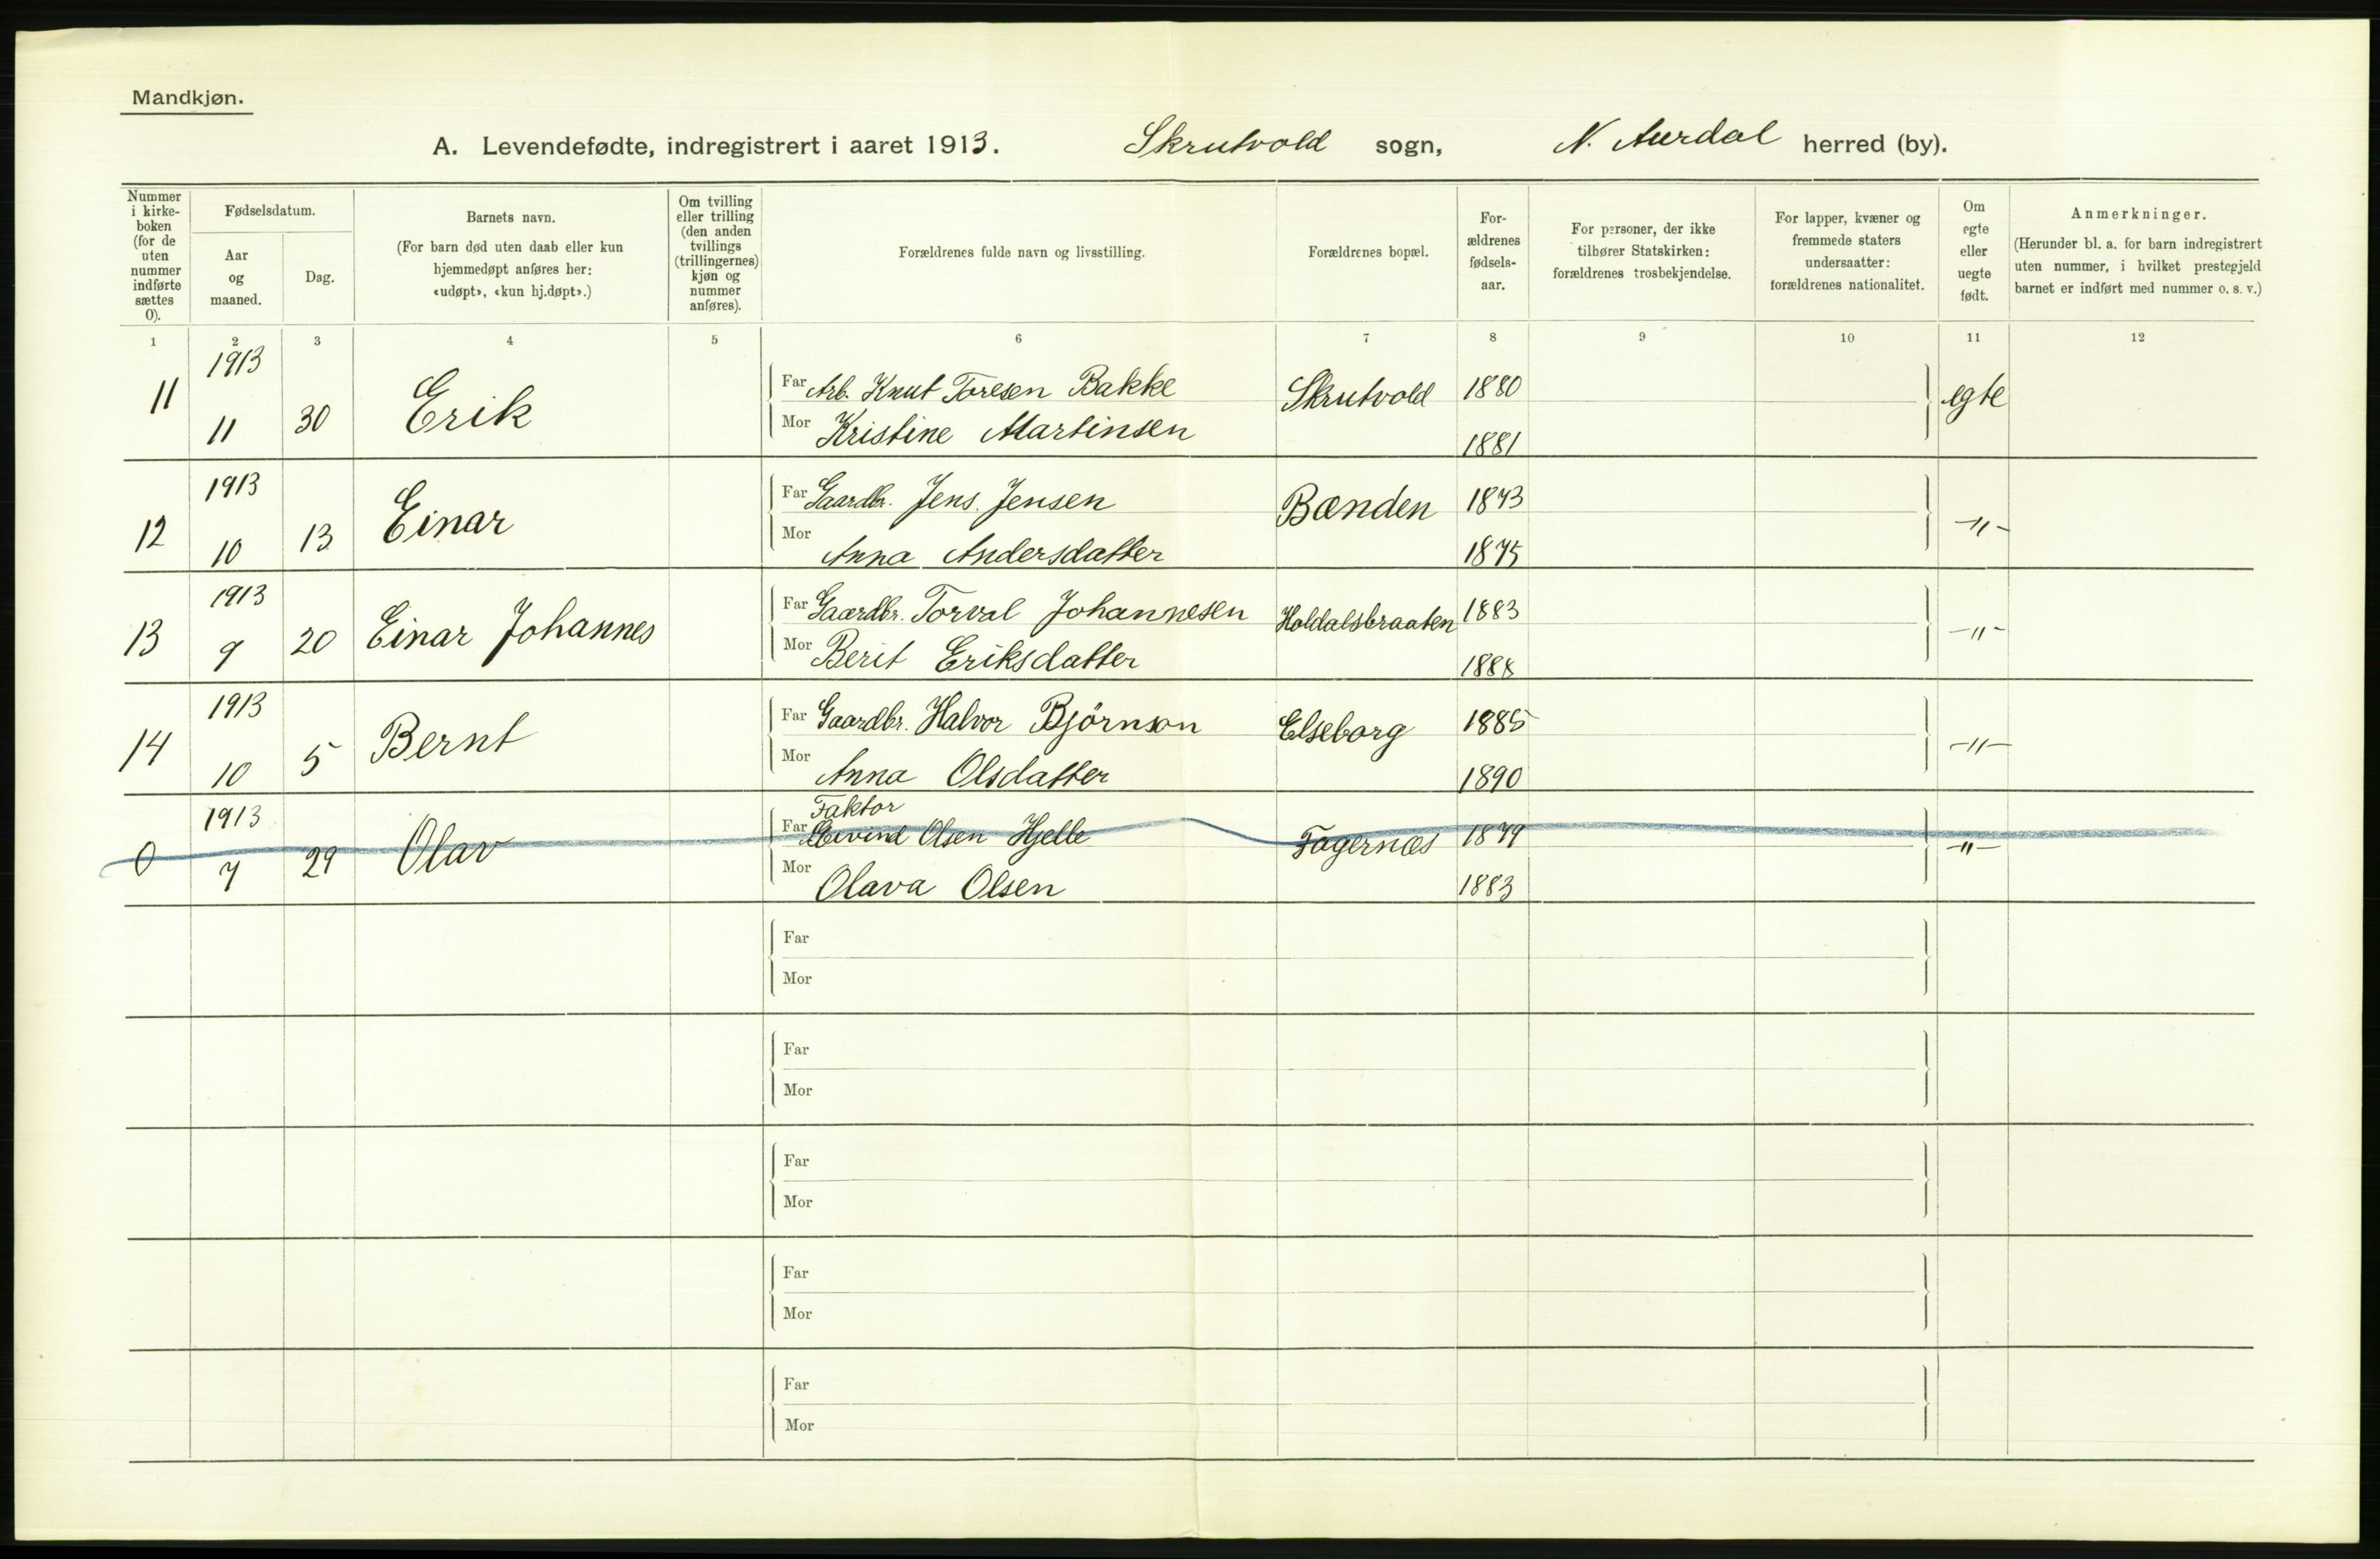 Mandkjøn.
A. Levendefødte, indregistrert i aaret 1913. Skrutvold sogn, N. Aurdal herred (by).
Nummer i kirke- boken (for de uten nummer indførte sættes 0).
Fødselsdatum.
Aar og maaned.
Dag.
Barnets navn.
(For barn død uten daab eller kun hjemmedøpt anføres her: «udøpt», «kun hj.døpt».)
Om tvilling eller trilling (den anden tvillings (trillingernes) kjøn og nummer anføres).
Forældrenes fulde navn og livsstilling.
Forældrenes bopæl.
For- ældrenes fødsels- aar.
For personer, der ikke tilhører Statskirken: forældrenes trosbekjendelse.
For lapper, kvæner og fremmede staters undersaatter: forældrenes nationalitet.
Om egte eller uegte født.
Anmerkninger.
(Herunder bl. a. for barn indregistrert uten nummer, i hvilket prestegjeld barnet er indført med nummer o. s. v.)
1 2 3 4 5 6 7 8 9 10 11 12
11 1913 11 30 Erik Far Arb. Knut Toresen Bakke Skrutvold 1880 egte
Mor Kristine Martinsen 1881
12 1913 10 13 Einar Far Gaardbr. Jens Jensen Bænden 1873 -"-
Mor Anna Andersdatter 1875
13 1913 9 20 Einar Johannes Far Gaardbr. Torval Johannesen Holdalsbraaten 1883 -"-
Mor Berit Eriksdatter 1888
14 1913 10 5 Bernt Far Gaardbr. Halvor Bjørnson Elseborg 1885 -"-
Mor Anna Olsdatter 1890
Faktor
0 1913 7 29 Olav Far Eivind Olsen Hjelle Fagernæs 1879 -"-
Mor Olava Olsen 1883
Far
Mor
Far
Mor
Far
Mor
Far
Mor
Far
Mor